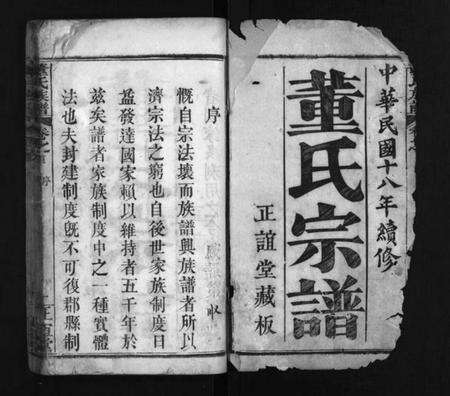 中華民國十八年續修
董氏宗譜
正誼堂藏板
序
慨自宗法壞而族譜興族譜者所以
濟宗法之窮也自後世家族制度日
益發達國家賴以維持者五千年於
茲矣譜者家族制度中之一種實體
法也夫封建制度既不可復郡縣制